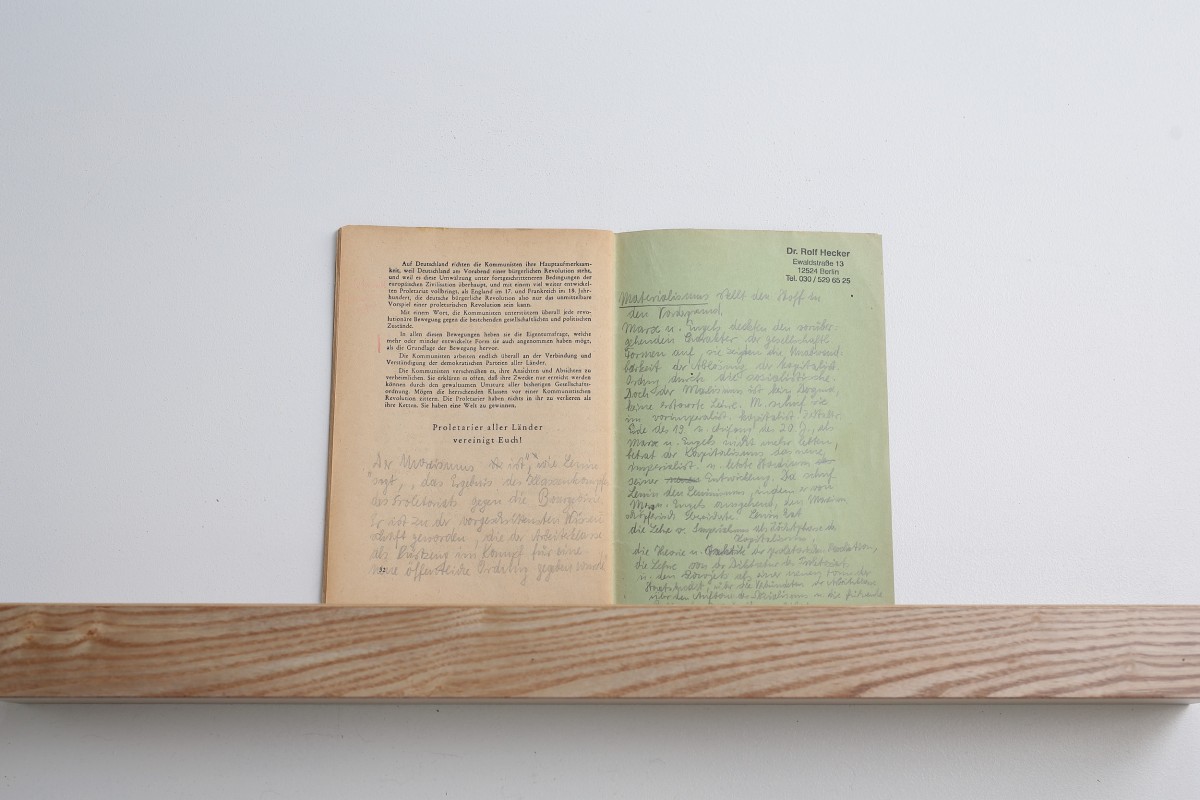 Auf Deutschland richten die Kommunisten ihre Hauptaufmerksam-
keit, weil Deutschland am Vorabend einer bürgerlichen Revolution steht,
und weil es diese Umwälzung unter fortgeschritteneren Bedingungen der
europäischen Zivilisation überhaupt, und mit einem viel weiter entwickel-
ten Proletariat vollbringt, als England im 17. und Frankreich im 18. Jahr-
hundert, die deutsche bürgerliche Revolution also nur das unmittelbare
Vorspiel einer proletarischen Revolution sein kann.
Mit einem Wort, die Kommunisten unterstützen überall jede revo-
lutionäre Bewegung gegen die bestehenden gesellschaftlichen und politischen
Zustände.
In allen diesen Bewegungen heben sie die Eigentumsfrage, welche
mehr oder minder entwickelte Form sie auch angenommen haben möge,
als die Grundlage der Bewegung hervor.
Die Kommunisten arbeiten endlich überall an der Verbindung und
Verständigung der demokratischen Parteien aller Länder.
Die Kommunisten verschmähen es, ihre Ansichten und Absichten zu
verheimlichen. Sie erklären es offen, daß ihre Zwecke nur erreicht werden
können durch den gewaltsamen Umsturz aller bisherigen Gesellschafts-
ordnung. Mögen die herrschenden Klassen vor einer Kommunistischen
Revolution zittern. Die Proletarier haben nichts in ihr zu verlieren als
ihre Ketten. Sie haben eine Welt zu gewinnen.
Proletarier aller Länder
vereinigt Euch!
Der Marxismus ist, wie Lenin
sagt, das Ergebnis des Klassenkampfes
des Proletariats gegen die Bourgoisie.
Er ist zu der vorgeschrittensten Wissen
schaft geworden, die der Arbeiterklasse
als im Kampf für eine
neue öffentliche Ordnung gegeben wurde
32
Dr. Rolf Hecker
Ewaldstraße 13
12524 Berlin
Tel. 030 / 529 65 25
Materialismus stellt den Stoff in
den Vordergrund.
Marx u. Engels deckten den vorüber-
gehenden Charakter der gesellschaftl.
Formen auf, sie zeigten die
der Ablösung der kapitalist.
Ordng durch die sozialistische.
Doch der ist kein Dogma,
keine erstarrte Lehre. M. schuf sie
im vorimperialist. Kapitalist. Zeitalter.
Ende des 19. u. Anfang des 20. J., als
Marx u. Engels nicht mehr lebten,
betrat der Kapitalismus das neue,
imperialist. u. letzte Stadium
seiner Entwicklung. Da schuf
Lenin den Leninismus, indem er von
Marx u. Engels ausgehend, den Marxism
schöpferisch
die Lehre v. Imperialism als
Kapitalismus,
die Theorie u. der proletarischen Revolution,
die Lehre von der Diktatur des Proletariat,
u. den Sowjets als einer neuen Form der
über den Aufbau des Sozialismus u. die führende